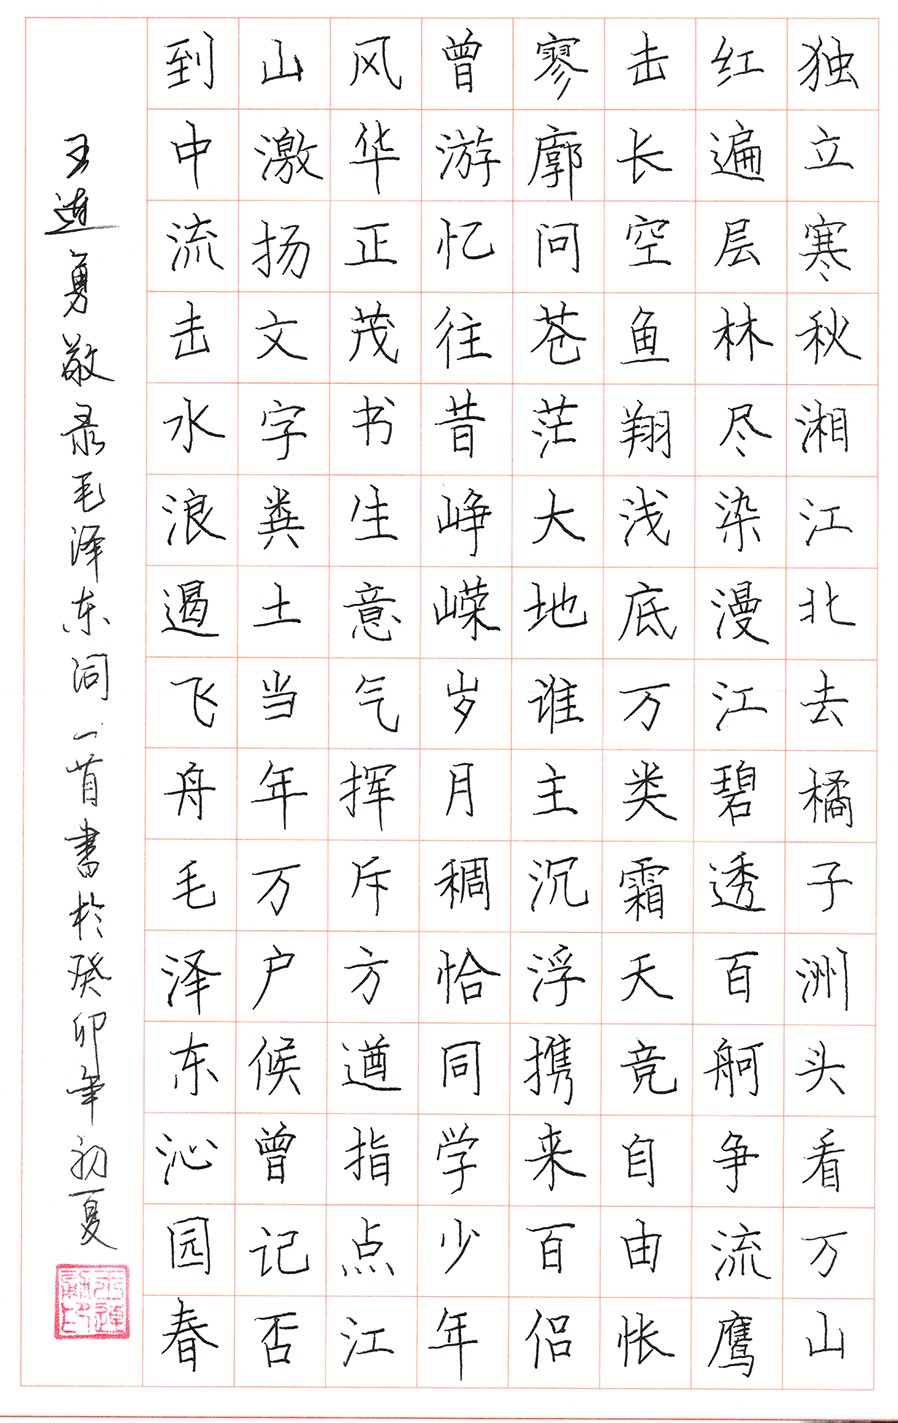 独立寒秋湘江北去橘子洲头看万山
红遍层林尽染漫江碧透百舸争流鹰
击长空鱼翔浅底万类霜天竞自由怅
寥廓问苍茫大地谁主沉浮携来百侣
曾游忆往昔峥嵘岁月稠恰同学少年
风华正茂书生意气挥斥方遒指点江
山激扬文字粪土当年万户候曾记否
到中流击水浪遏飞舟毛泽东沁园春
王连勇敬录毛泽东词一首書於癸卯年初夏
王連勇印